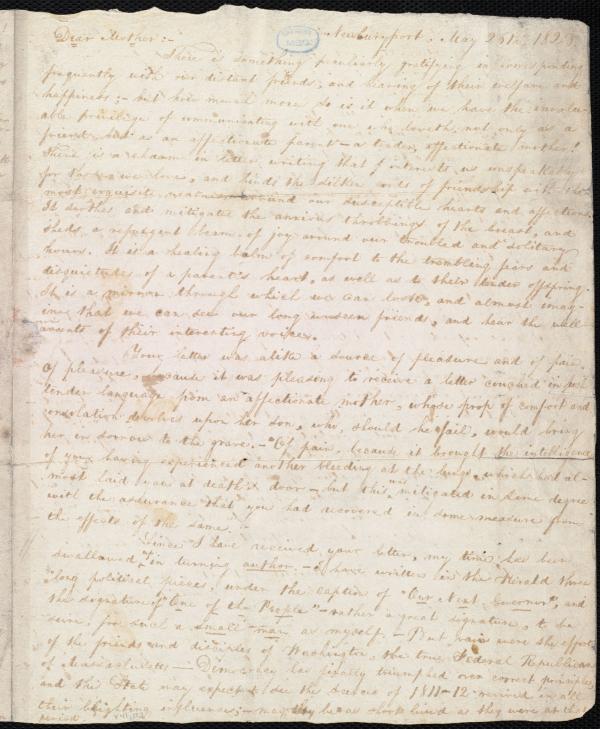 Dear Mother:— Newburyport, May 26th, 1823
There is something peculiarly gratifying in corresponding
frequently with our distant friends, and hearing of their welfare and
happiness;— but how much more so is it when we have the invalu-
able privilege of communicating with one who loveth, not only as a
friend but as an affectionate parent—a tender, affectionate mother!
There is a charm in letter writing that interests us unspeakably
for those we love, and binds the silken cords of friendship with the
most exquisite neatness around our susceptible hearts and affections.
It soothes and mitigates the anxious throbbings of the breast, and
sheds a refulgent beam of joy around our troubled and solitary
hours. It is a healing balm of comfort to the trembling fears and
disquietudes of a parent's heart, as well as to their tender offspring.
It is a mirror through which we can look, and almost imag-
ine that we can see our long unseen friends, and hear the well
accents of their interesting voices.
Your letter was alike a source of pleasure and of pain.
Of pleasure, because it was pleasing to receive a letter couched in such
tender language from an affectionate mother, whose prop of comfort and
consolation devolves upon her son, who, should he fail, would bring
her in sorrow to the grave.—Of pain, because it brought the intelligence
of your having experienced another bleeding at the lungs, which had al-
most laid you at death's door—but this was mitigated in some degree
with the assurance that you had recovered in some measure from
the effects of the same.—
Since I have received your letter, my time has been
swallowed up in turning author.—I have written in the Herald three
long political pieces, under the caption of "Our Next Governor", and
the signature of "One of the People"—rather a great signature, to be
sure, for such a small man as myself.—But vain were the efforts
of the friends and disciples of Washington, the true Federal Republicans
of Massachusetts—Democracy has finally triumphed over correct principles,
and the State may expect to see the scenes of 1811–12 revived in all
their blighting influences;—may they be as short lived as they were at that
period.